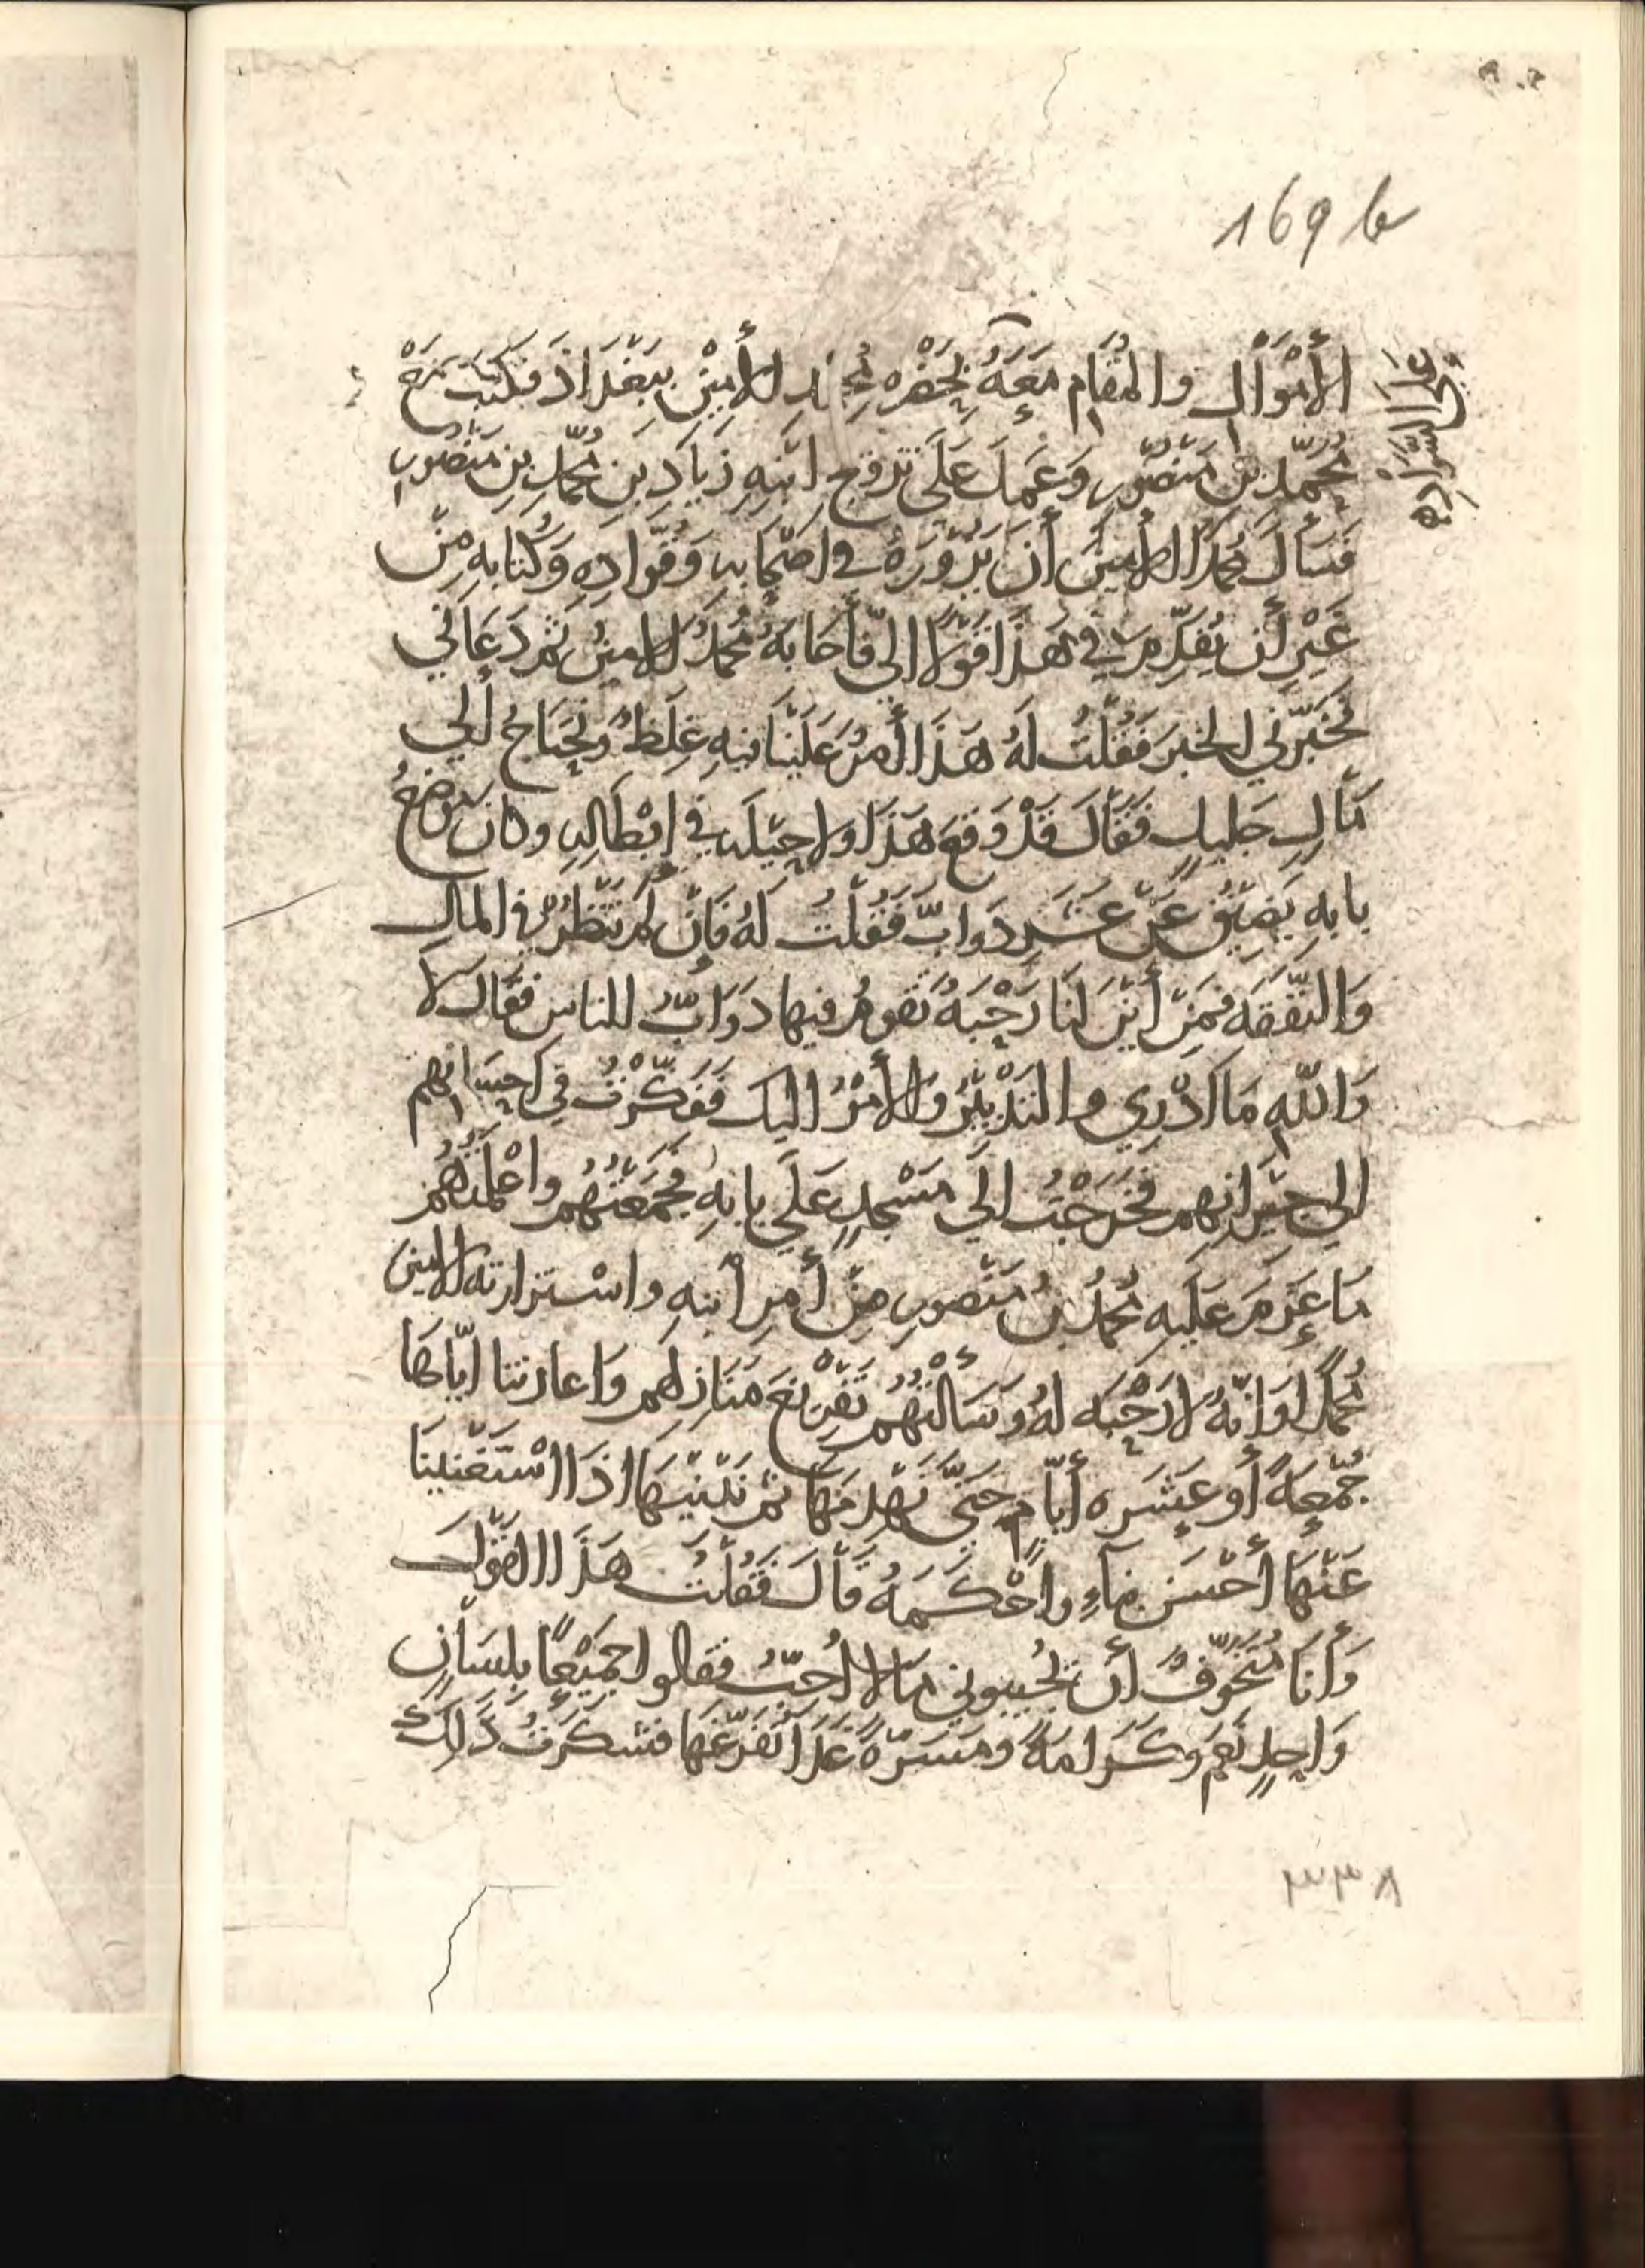 169 b
الأَمْوَالِ والمُقَامِ مَعَهُ بِحَضْرِه مُحمد الأَمِيْنِ بِبَغْدَاذَ فكَتَبْتُ مَعَ
مُحَمّدِ بْنِ مَنْصُورٍ وَعَمِلَ عَلَى تزوّج ابْنِهِ زِيَادِ بنِ مُحَمَّدِ بنِ مَنْصُورٍ
فَسَأَلَ مُحمَّدًا الأَمِينَ أَن يَزُورَهُ في اصْحَابِهِ وَقُوّادِهِ وَكُتَّابِهِ مِنْ
غَيْرِ أَن يُقَدِّمَ في هَذَا قَوْلًا اليَّ فأجَابَهُ مُحمَّدٌ الامِينُ ثُمَّ دَعَاني
فَخَبَّرَني الخَبرَ فَقُلْتُ لَهُ هَذَا أَمرٌ عَلَيْنَا فيهِ غِلَظٌ ونَحْتَاج إلي
مَالٍ جَلِيلٍ فَقَالَ قَدْ وَقَعَ هَذَا ولا حِيْلَه في إبْطَالِهِ وكانَ مَوضِعُ
بابِهِ يَضِيْقُ عَنْ عَشرِ دَوابَّ فَقُلْتُ لَهُ فَإنْ لَم تَنْظُرْ في المالِ
وَالنّفَقَه فَمِنْ أَيْنَ لنَا رَحْبَهٌ تَقُومُ فيها دَوَابُّ للناس فقَالَ لَا
وَاللّهِ مَا ادْرِي والتَدْبِيْرُ والأَمْرُ اليكَ فَفكَّرْتُ في احْسَانِهِم
الي جِيْرانِهِم فخَرَجْتُ الي مَسْجِدٍ عَلَي بابِهِ فجَمَعْتُهُم واعْلَمْتُهُم
مَا عَزَمَ عَلَيهِ مُحمَّدُ بنُ مَنْصورٍ مِنْ أَمرِ ابْنِهِ واسْتزارته الامين
مُحمَّدًا وَانّهُ لا رَحْبَه لهُ وَسَأَلْتُهُم تَفْرِيْغَ مَنَازِلِهِم وَاعارتنا ايّاهَا
جُمْعةً أَو عَشَرَه أيّامٍ حَتَّى نَهْدِمَهَا ثُم نَبْنِيْهَا اذَا اسْتَغْنيْنَا
عَنْهَا أَحْسَن بِنَاءٍ واحْكَمَهُ قَالَ فَقُلْتُ هَذَا القَوْلَ
وَأَنَا مُتَخَوِّفٌ أَن تُجِيبوني بمَا لا اُحبُّ فقالوا جَمِيْعًا بِلِسَانٍ
وَاحِدٍ نَعَم وكَرَامَةً ومَسَرَّةً غَدًا نُفَرِّغُهَا فشكَرْتُ ذَلِكَ
عَلَى السَّوَادِ
٣٣٨